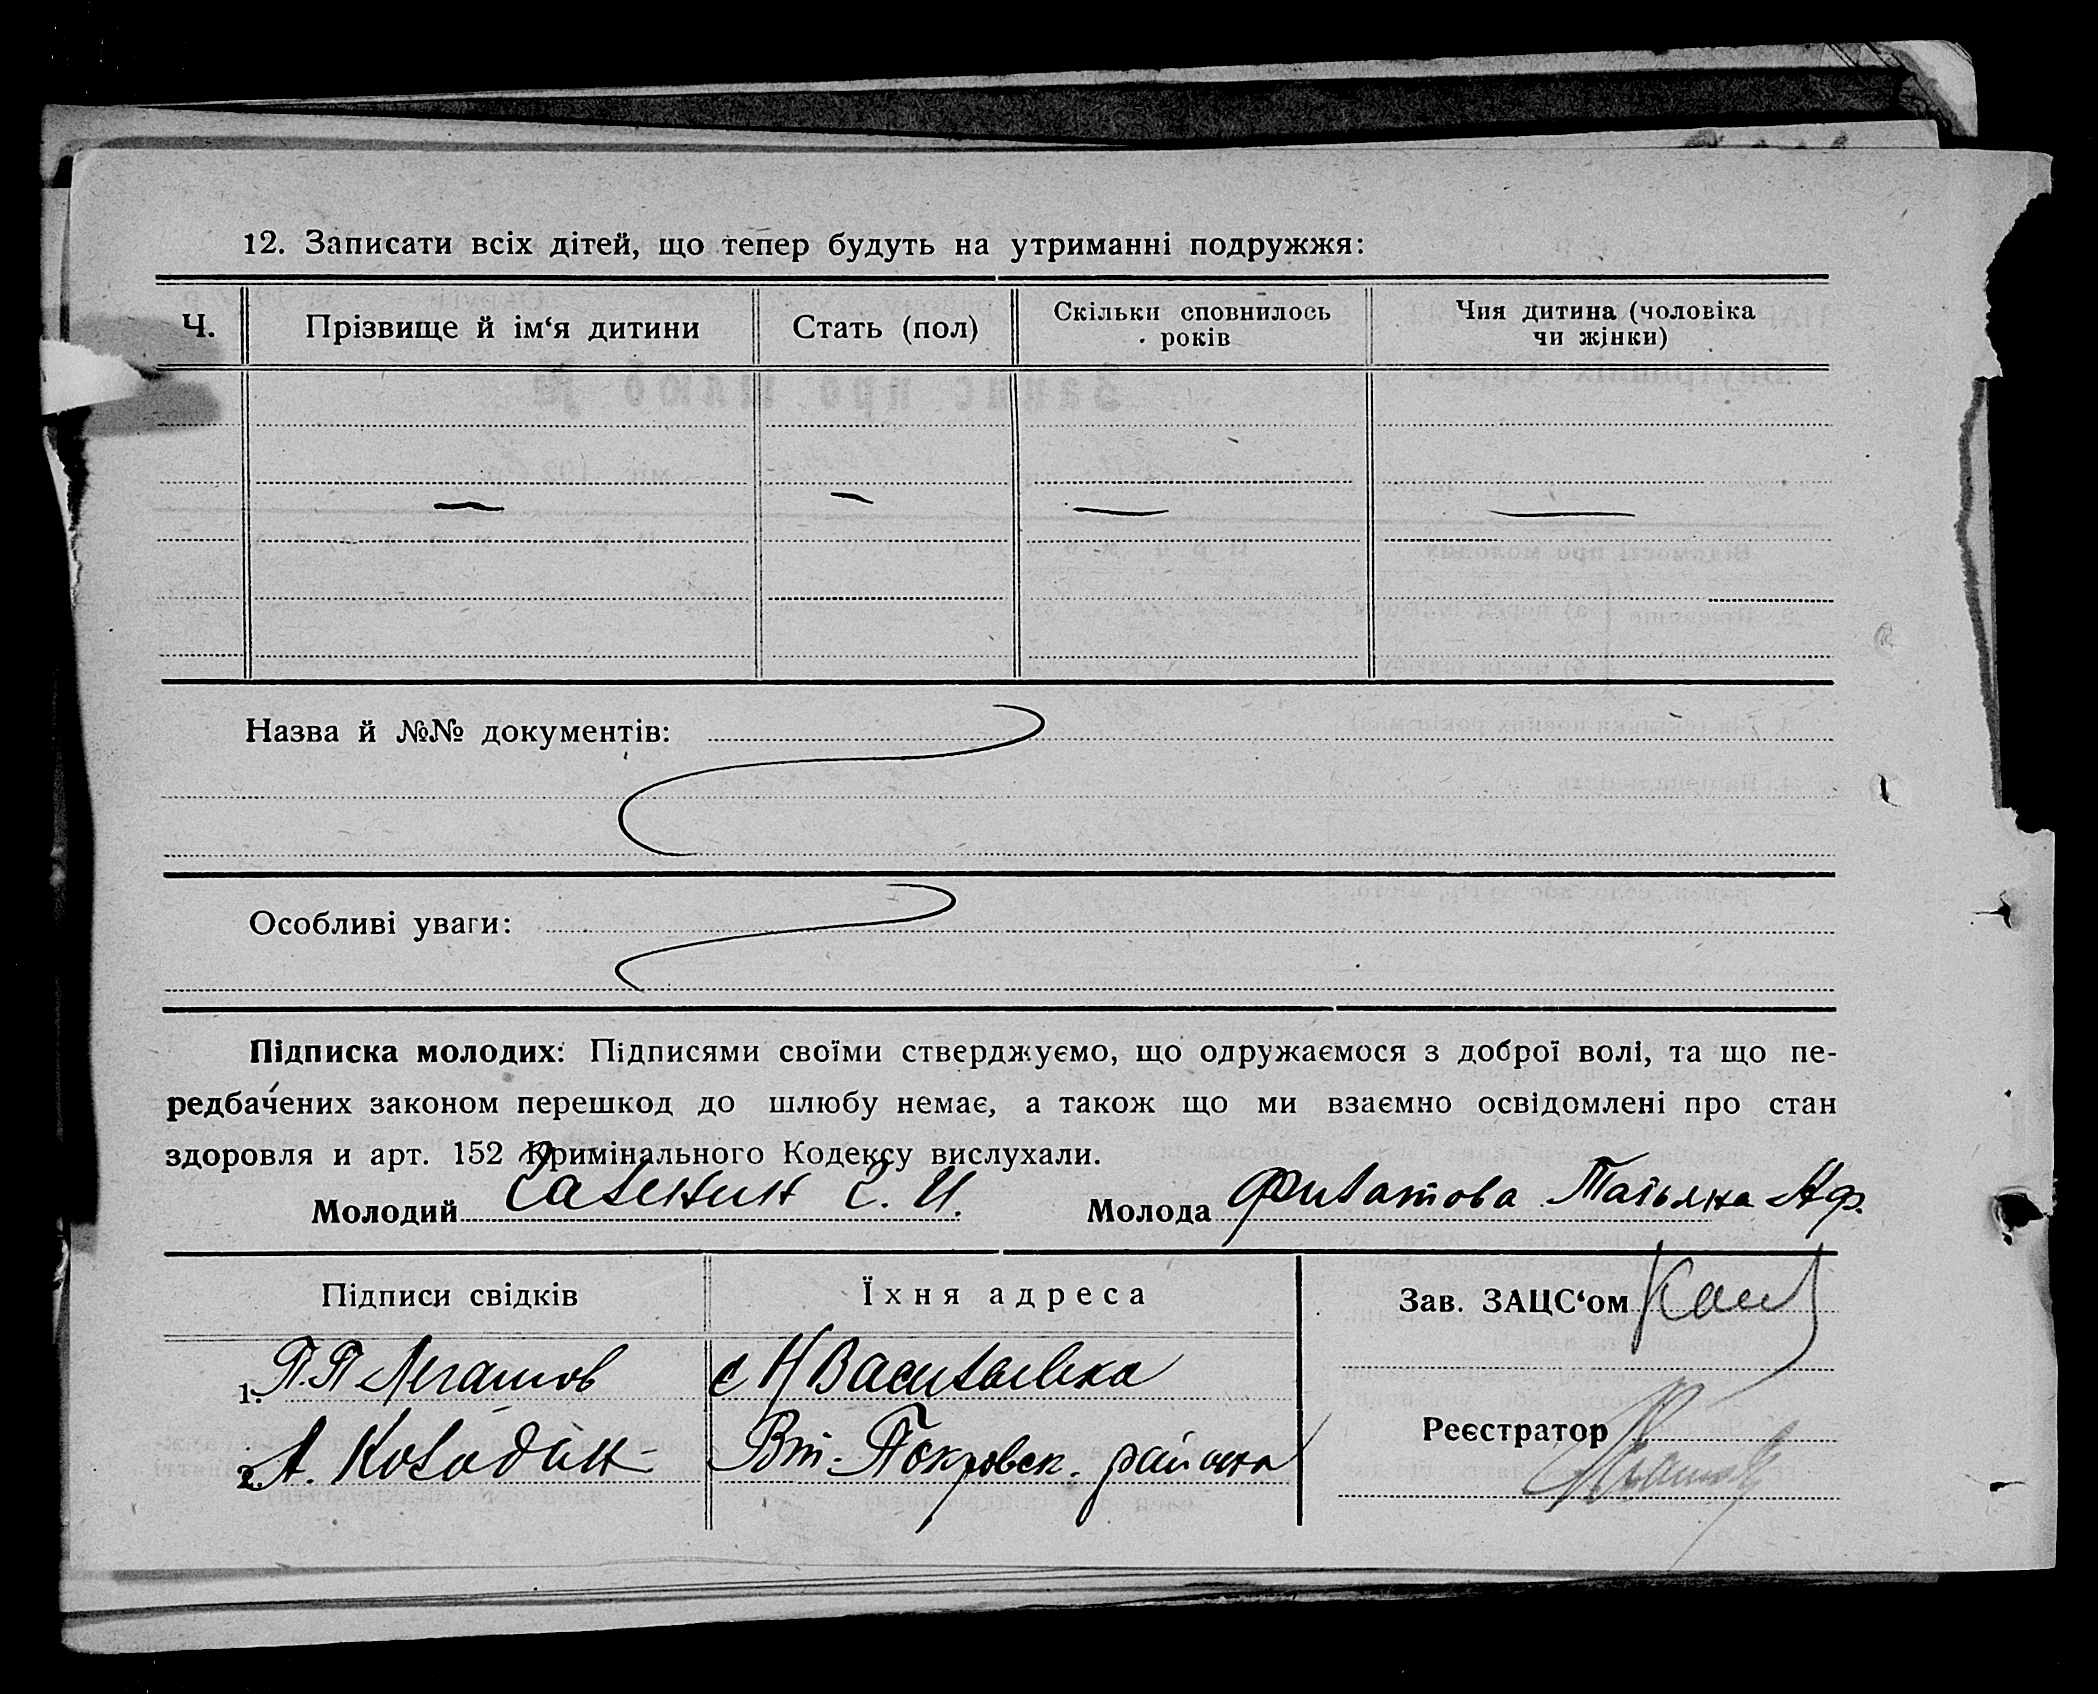 12. Записати всіх дітей, що тепер будуть на утриманні подружжя:
Ч. Прізвище й ім‘я дитини Стать (пол) Скільки сповнилось років Чия дитина (чоловіка чи жінки)
— — — —
Назва й №№ документів:
Особливі уваги:
Підписка молодих: Підписями своїми стверджуємо, що одружаємося з доброї волі, та що пе-
редбачених законом перешкод до шлюбу немає, а також що ми взаємно освідомлені про стан
здоровля и арт. 152 Кримінального Кодексу вислухали.
Молодий И. Молода Филатова Татьяна Аф.
Підписи свідків Їхня адреса Зав. ЗАЦС‘ом
1. П.П Легашов с Н Васильевка
2. А. Колодан Вт-Покровск. района
Реєстратор